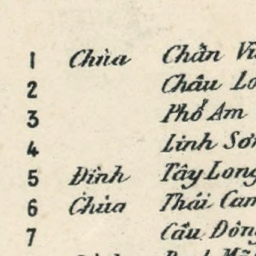 1 Chùa Chấn
2 Châu
3 Phổ Am
4 Linh Sơn
5 Đình Tây Long
6 Chùa Thái Cam
7 Cầu Đông